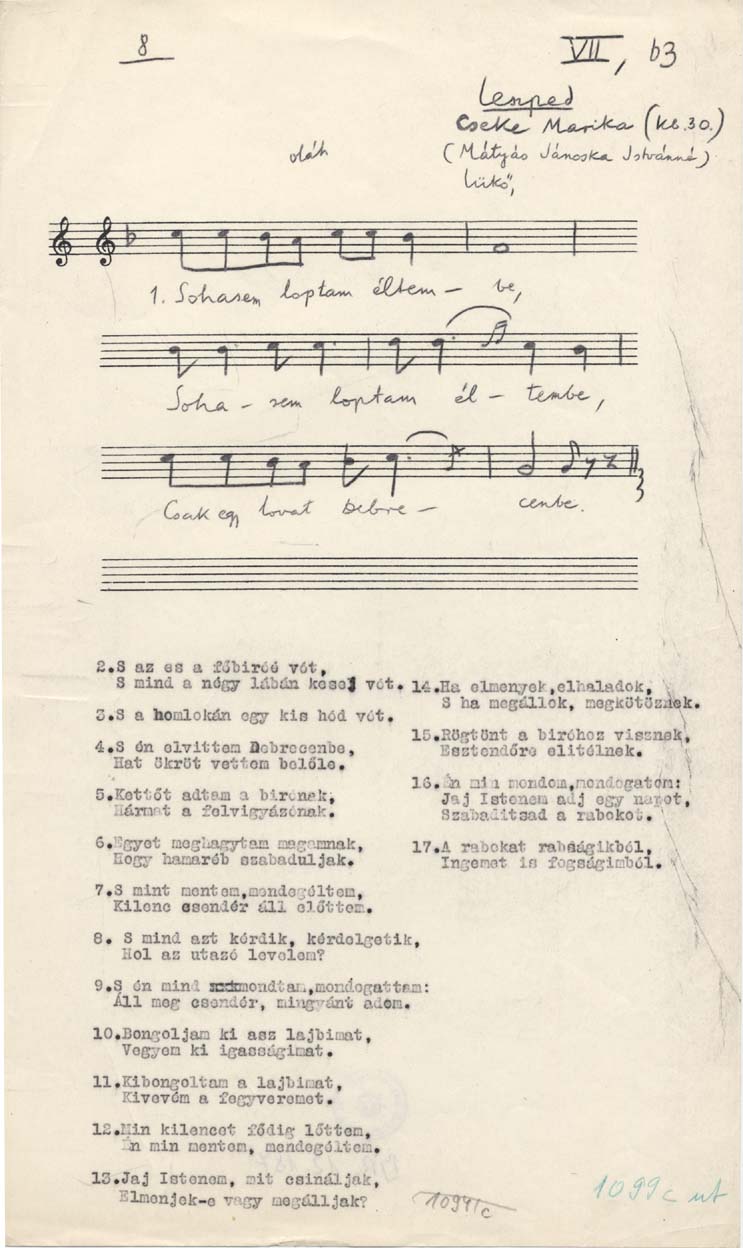 8
VII, b3
Lészped
Cseke Marika (kb. 30.)
(Mátyás Jánoska Istvánné)
Lükő,
oláh
1. Sohasem loptam éltem – be,
Soha – sem loptam él – tembe,
Csak egy lovat Debre – cenbe.
2.S az es a főbiróé vót,
S mind a négy lábán kesej vót.
3.S a homlokán egy kis hód vót.
4.S én elvittem Debrecenbe,
Hat ökröt vettem belőle.
5.Kettőt adtam a birónak,
Hármat a felvigyázónak.
6.Egyet meghagytam magamnak,
Hogy hamaréb szabaduljak.
7.S mint mentem,mendegéltem,
Kilenc csendér áll előttem.
8. S mind azt kérdik, kérdelgetik,
Hol az utazó levelem?
9.S én mind mondtam,mondogattam:
Áll meg csendér, mingyánt adom.
10.Bongoljam ki asz lajbimat,
Vegyem ki igasságimat.
11.Kibongoltam a lajbimat,
Kivevém a fegyveremet.
12.Min kilencet fődig lőttem,
Én min mentem, mendegéltem.
13.Jaj Istenem, mit csináljak,
Elmenjek-e vagy megálljak?
14.Ha elmenyek,elhaladok,
S ha megállok, megkötöznek.
15.Rögtönt a biróhoz visznek,
Esztendőre elitélnek.
16.Én min mondom,mondogatom:
Jaj Istenem adj egy napot,
Szabaditsad a rabokot.
17.A rabokat rabságikból,
Ingemet is fogságimból.
1094/c
1099c ut